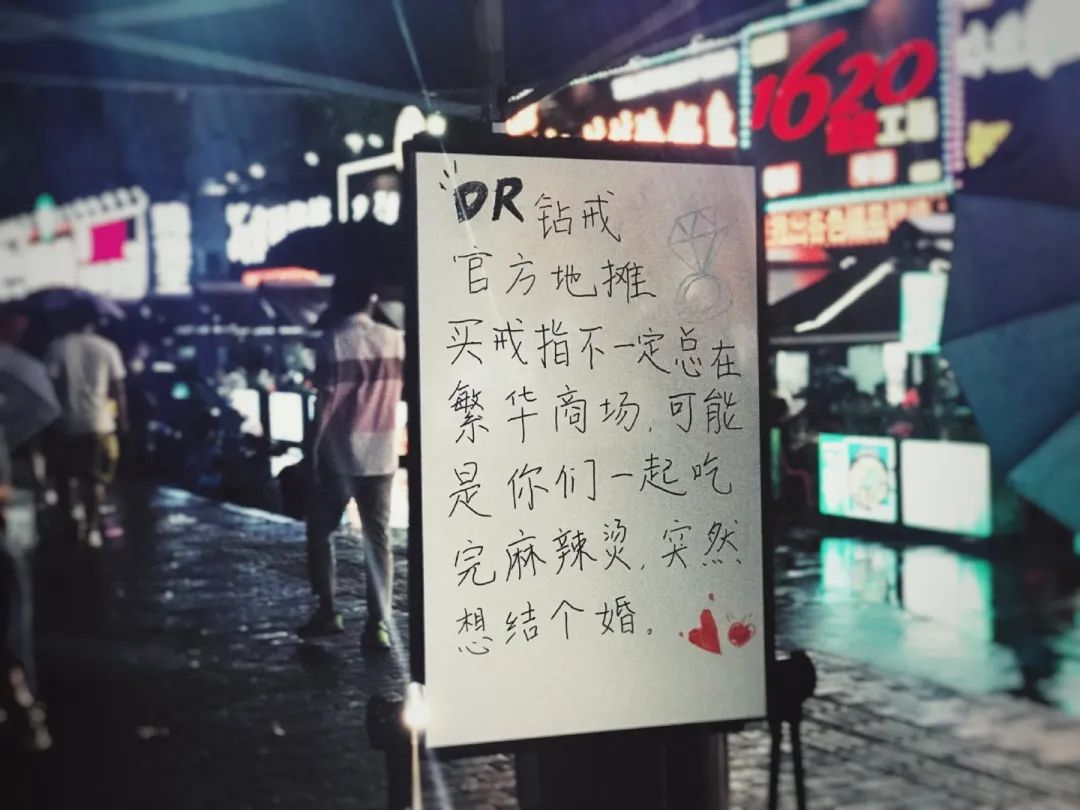 DR 钻戒
官方地摊
买戒指不一定总在
繁华商场,可能
是你们一起吃
完麻辣烫,突然
想结个婚。
1620
工場